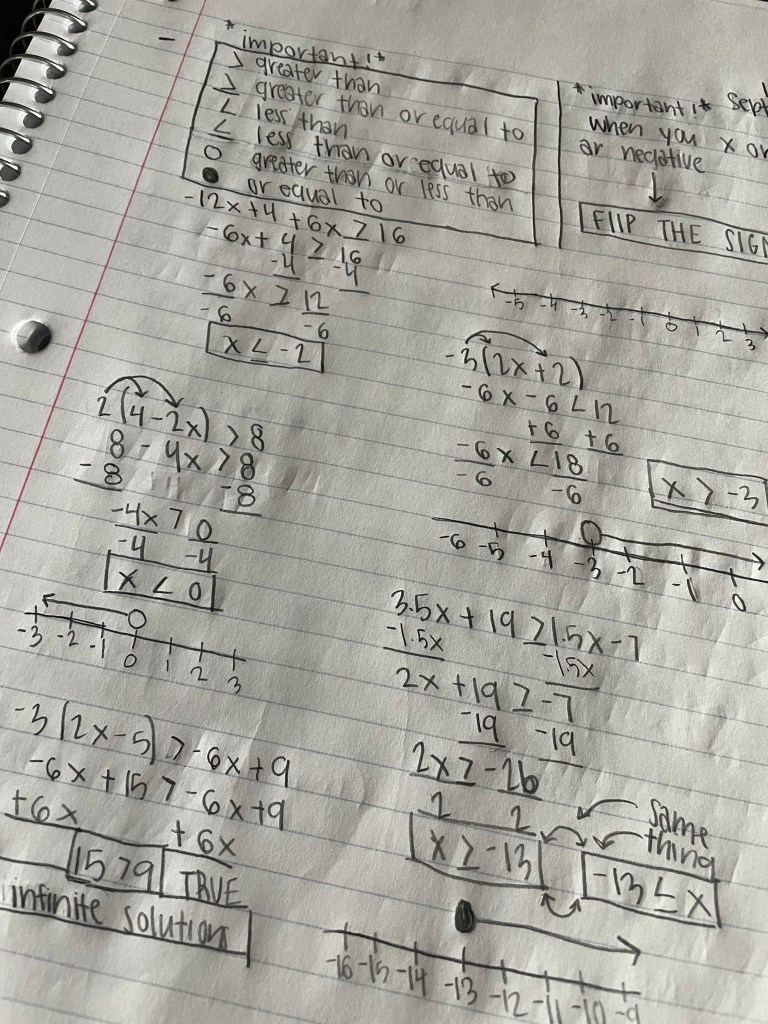 *important!*
> greater than
≥ greater than or equal to
< less than
≤ less than or equal to
○ greater than or less than
● or equal to
-12x+4+6x ≥ 16
-6x+ 4 ≥ 16
-4 -4
-6x ≥ 12
-6 -6
x < -2
2(4-2x) > 8
8 - 4x > 8
-8 -8
-4x > 0
-4 -4
x < 0
-3 -2 -1 0 1 2 3
-3(2x-5) > -6x+9
-6x+15 > -6x+9
+6x +6x
15>9 TRUE
infinite solution
*important!* Sept
when you x or
ar negative
FlIP THE SIGN
-5 -4 -3 -2 -1 0 1 2 3
-3(2x+2)
-6x-6<12
+6 +6
-6x <18
-6 -6
x > -3
-6 -5 -4 -3 -2 -1 0
3.5x + 19 ≥ 1.5x-7
-1.5x -1.5x
2x +19 ≥ -7
-19 -19
2x ≥ -26
2 2
same
thing
x ≥ -13
-13 ≤ x
-16 -15 -14 -13 -12 -11 -10 -9